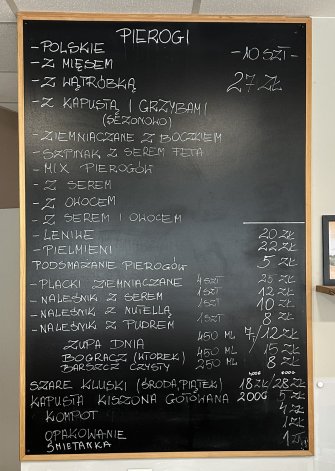 PIEROGI
- POLSKIE - 10 SZT -
- Z MIĘSEM
- Z WĄTRÓBKĄ 27 ZŁ
- Z KAPUSTĄ I GRZYBAMI
(SEZONOWO)
- ZIEMNIACZANE Z BOCZKIEM
- SZPINAK Z SEREM FETA
- MIX PIEROGÓW
- Z SEREM
- Z OWOCEM
- Z SEREM I OWOCEM
- LENIWE 20 ZŁ
- PIELMIENI 22 ZŁ
PODSMAŻANIE PIEROGÓW 5 ZŁ
- PLACKI ZIEMNIACZANE 4 SZT 25 ZŁ
- NALEŚNIK Z SEREM 1 SZT 12 ZŁ
- NALEŚNIK Z NUTELLĄ 1 SZT 10 ZŁ
- NALEŚNIK Z PUDREM 1 SZT 8 ZŁ
ZUPA DNIA 450 ML 7/12 ZŁ
BOGRACZ (WTOREK) 450 ML 15 ZŁ
BARSZCZ CZYSTY 250 ML 8 ZŁ
SZARE KLUSKI (ŚRODA, PIĄTEK) 18 ZŁ 28 ZŁ
KAPUSTA KISZONA GOTOWANA 200G 5 ZŁ
KOMPOT 4 ZŁ
OPAKOWANIE 1 ZŁ
ŚMIETANKA 1 ZŁ